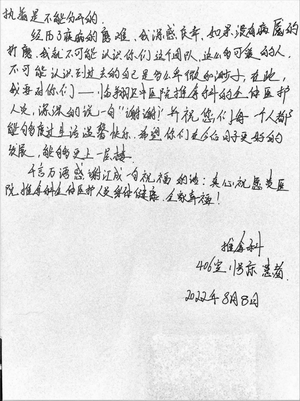 热益是不能分开的。
经历了疾病的磨难，我深感良多，如果没有病魔的
折磨，我就不可能认识你们这个团队，这么的可爱的人，
不可能认识到过去的自己是多么年傲和渺小，在此，
我要对你们——医院推拿科的全体医护
人员，深深的说一句"谢谢"并祝您们每一个人都
能够度过生活温馨快乐，希望你们在今后日子更好的
发展，能够更上一层楼
千言万语感谢汇成一句祝福的话：真心祝愿贵医
院推拿科全体医护人员身体健康，全家幸福！
推拿科
406室 患者
2022年8月8日